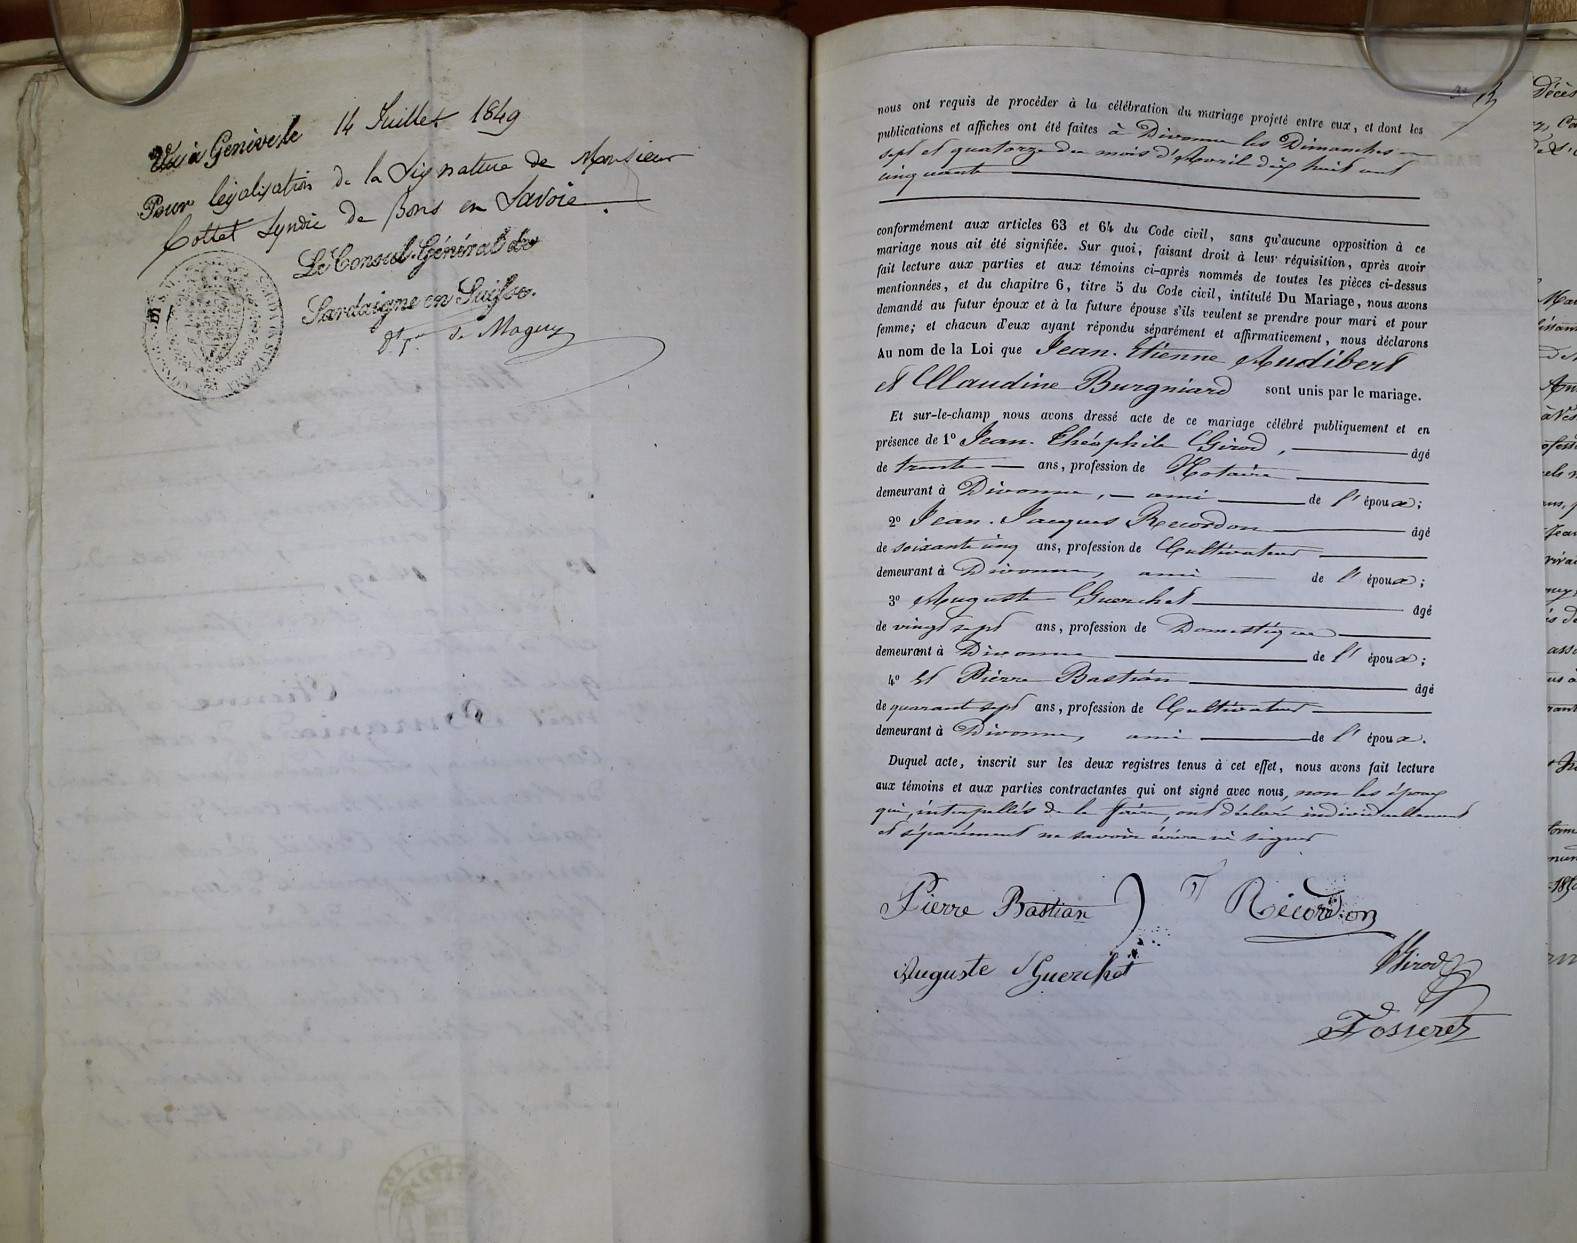 Vu à Genève le 14 Juillet 1849
Pour légalisation de la Signature de Monsieur
Cottet Syndic de Bons en Savoie.
Le Consul Général de
Sardaigne en Suisse.
de Magny
nous ont requis de procéder à la célébration du mariage projeté entre eux, et dont les
publications et affiches ont été faites à Divonne les Dimanches
sept et quatorze du mois d'Avril dix huit cent
cinquante
conformément aux articles 63 et 64 du Code civil, sans qu'aucune opposition à ce
mariage nous ait été signifiée. Sur quoi, faisant droit à leur réquisition, après avoir
fait lecture aux parties et aux témoins ci-après nommés de toutes les pièces ci-dessus
mentionnées, et du chapitre 6, titre 5 du Code civil, intitulé Du Mariage, nous avons
demandé au futur époux et à la future épouse s'ils veulent se prendre pour mari et pour
femme; et chacun d'eux ayant répondu séparément et affirmativement, nous déclarons
Au nom de la Loi que Jean-Etienne Audibert
et Claudine Burgniard sont unis par le mariage.
Et sur-le-champ nous avons dressé acte de ce mariage célébré publiquement et en
présence de 1º Jean-Théophile Girod, âgé
de trente ans, profession de Notaire
demeurant à Divonne, ami de l'époux;
2º Jean-Jacques Recordon âgé
de soixante cinq ans, profession de Cultivateur
demeurant à Divonne, ami de l'époux;
3º Auguste Guerchet âgé
de vingt sept ans, profession de Domestique
demeurant à Divonne de l'époux;
4º et Pierre Bastian âgé
de quarante sept ans, profession de Cultivateur
demeurant à Divonne, ami de l'époux.
Duquel acte, inscrit sur les deux registres tenus à cet effet, nous avons fait lecture
aux témoins et aux parties contractantes qui ont signé avec nous, non les époux
qui, interpellés de le faire, ont déclaré individuellement
et séparément ne savoir écrire ni signer
Pierre Bastian Recordon
Auguste Guerchet Girod
Fossierez